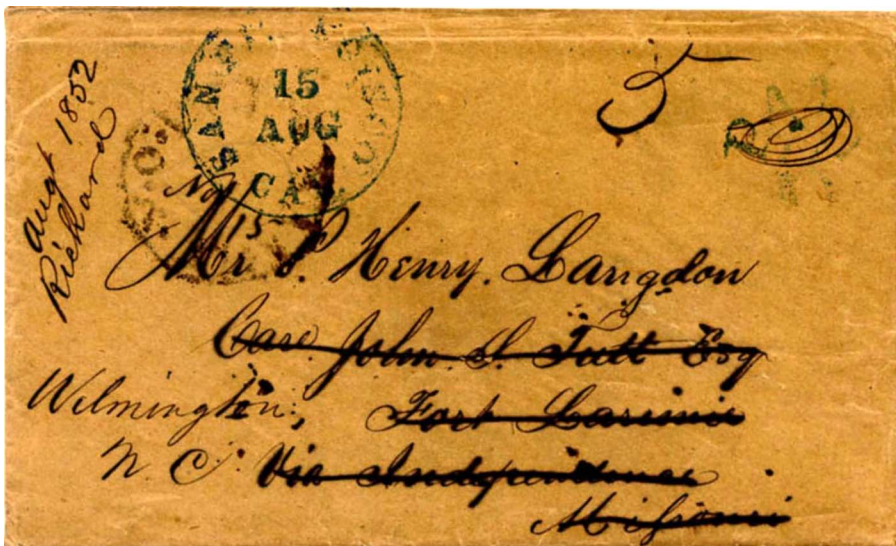 Augt 1852
Rickard
SAN FRANCISCO
15
AUG
CAL.
5
No 15
Mr P. Henry. Langdon
Care John S. Tutt Esq
Wilmington, Fort Larimie
N C. Via Independence
Missouri